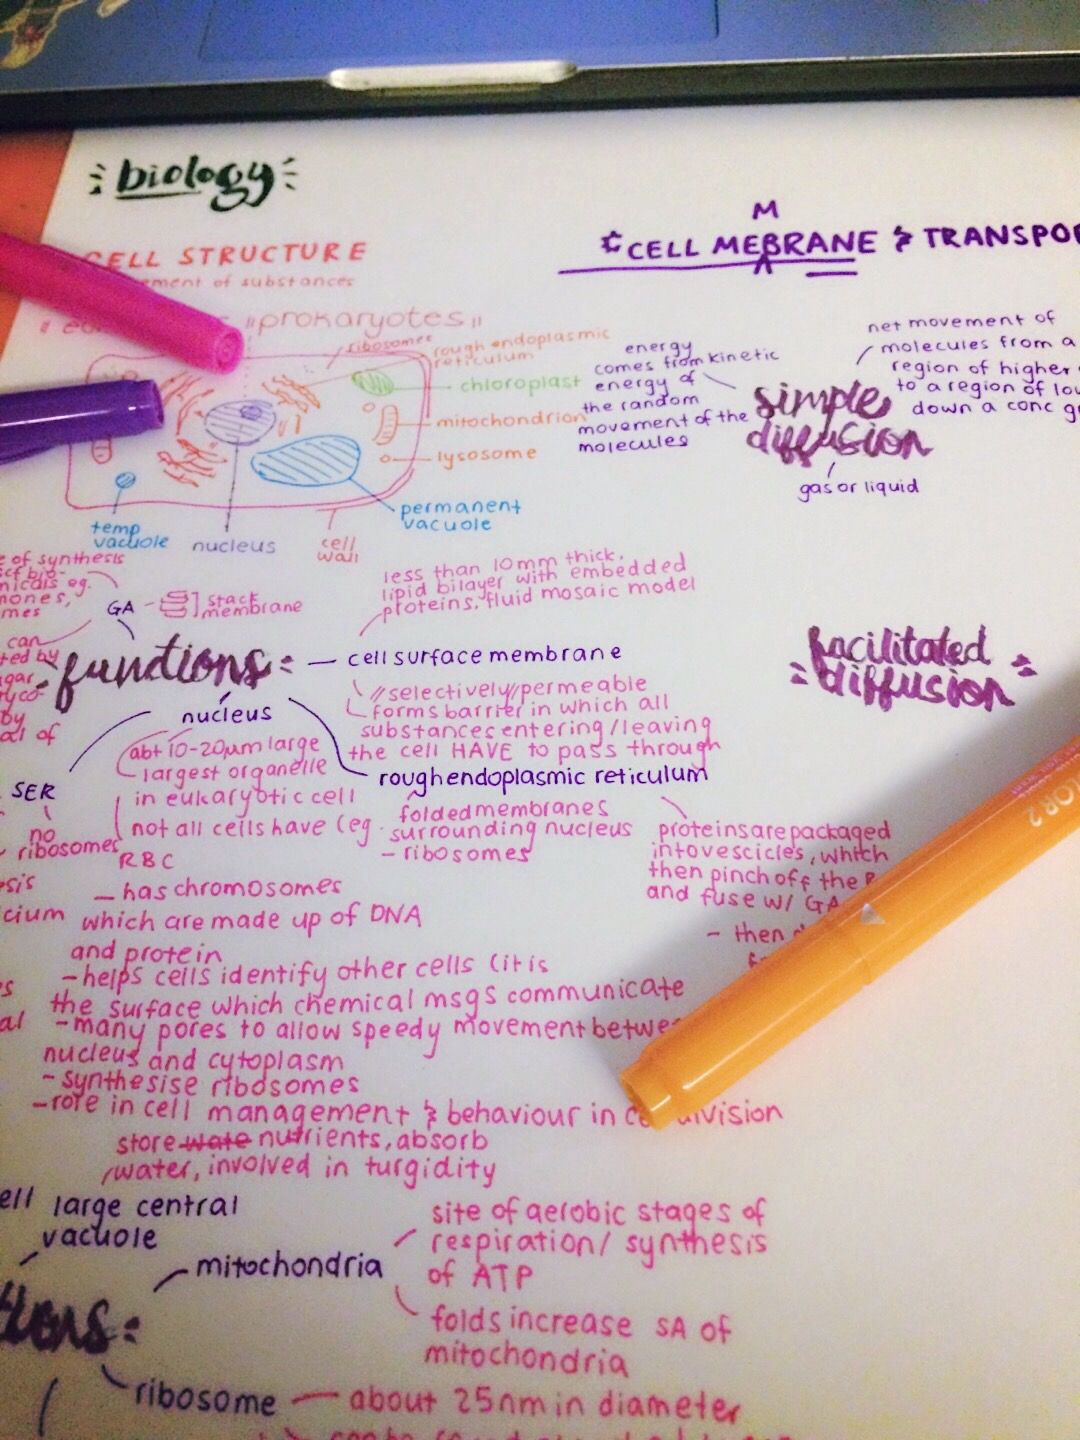 biology
CELL STRUCTURE
ement of substances
"prokaryotes"
ribosomes
rough endoplasmic
reticulum
chloroplast
mitochondrion
lysosome
permanent
vacuole
temp
vacuole
nucleus
cell
wall
M
CELL MEBRANE & TRANSPO
energy
comes from kinetic
energy of
the random
movement of the
molecules
simple
diffusion
net movement of
molecules from a
region of higher
to a region of lo
down a conc g
gas or liquid
facilitated
diffusion
e of synthesis
GA
stack
membrane
can
ted by
by
al of
functions:
less than 10mm thick,
lipid bilayer with embedded
proteins, fluid mosaic model
cell surface membrane
"selectively" permeable
forms barrier in which all
substances entering/leaving
the cell HAVE to pass through
nucleus
abt 10-20µm large
largest organelle
in eukaryotic cell
not all cells have (eg.
RBC
- has chromosomes
which are made up of DNA
and protein
- helps cells identify other cells (it is
the surface which chemical msgs communicate
- many pores to allow speedy movement betwe
nucleus and cytoplasm
- synthesise ribosomes
- role in cell management & behaviour in ce division
SER
no
ribosomes
esis
cium
rough endoplasmic reticulum
folded membranes
surrounding nucleus
- ribosomes
proteins are packaged
into vescicles, which
then pinch off the
and fuse w/ GA
- then
store wate nutrients, absorb
water, involved in turgidity
ell large central
vacuole
mitochondria
site of aerobic stages of
respiration/ synthesis
of ATP
folds increase SA of
mitochondria
tions:
ribosome
about 25nm in diameter